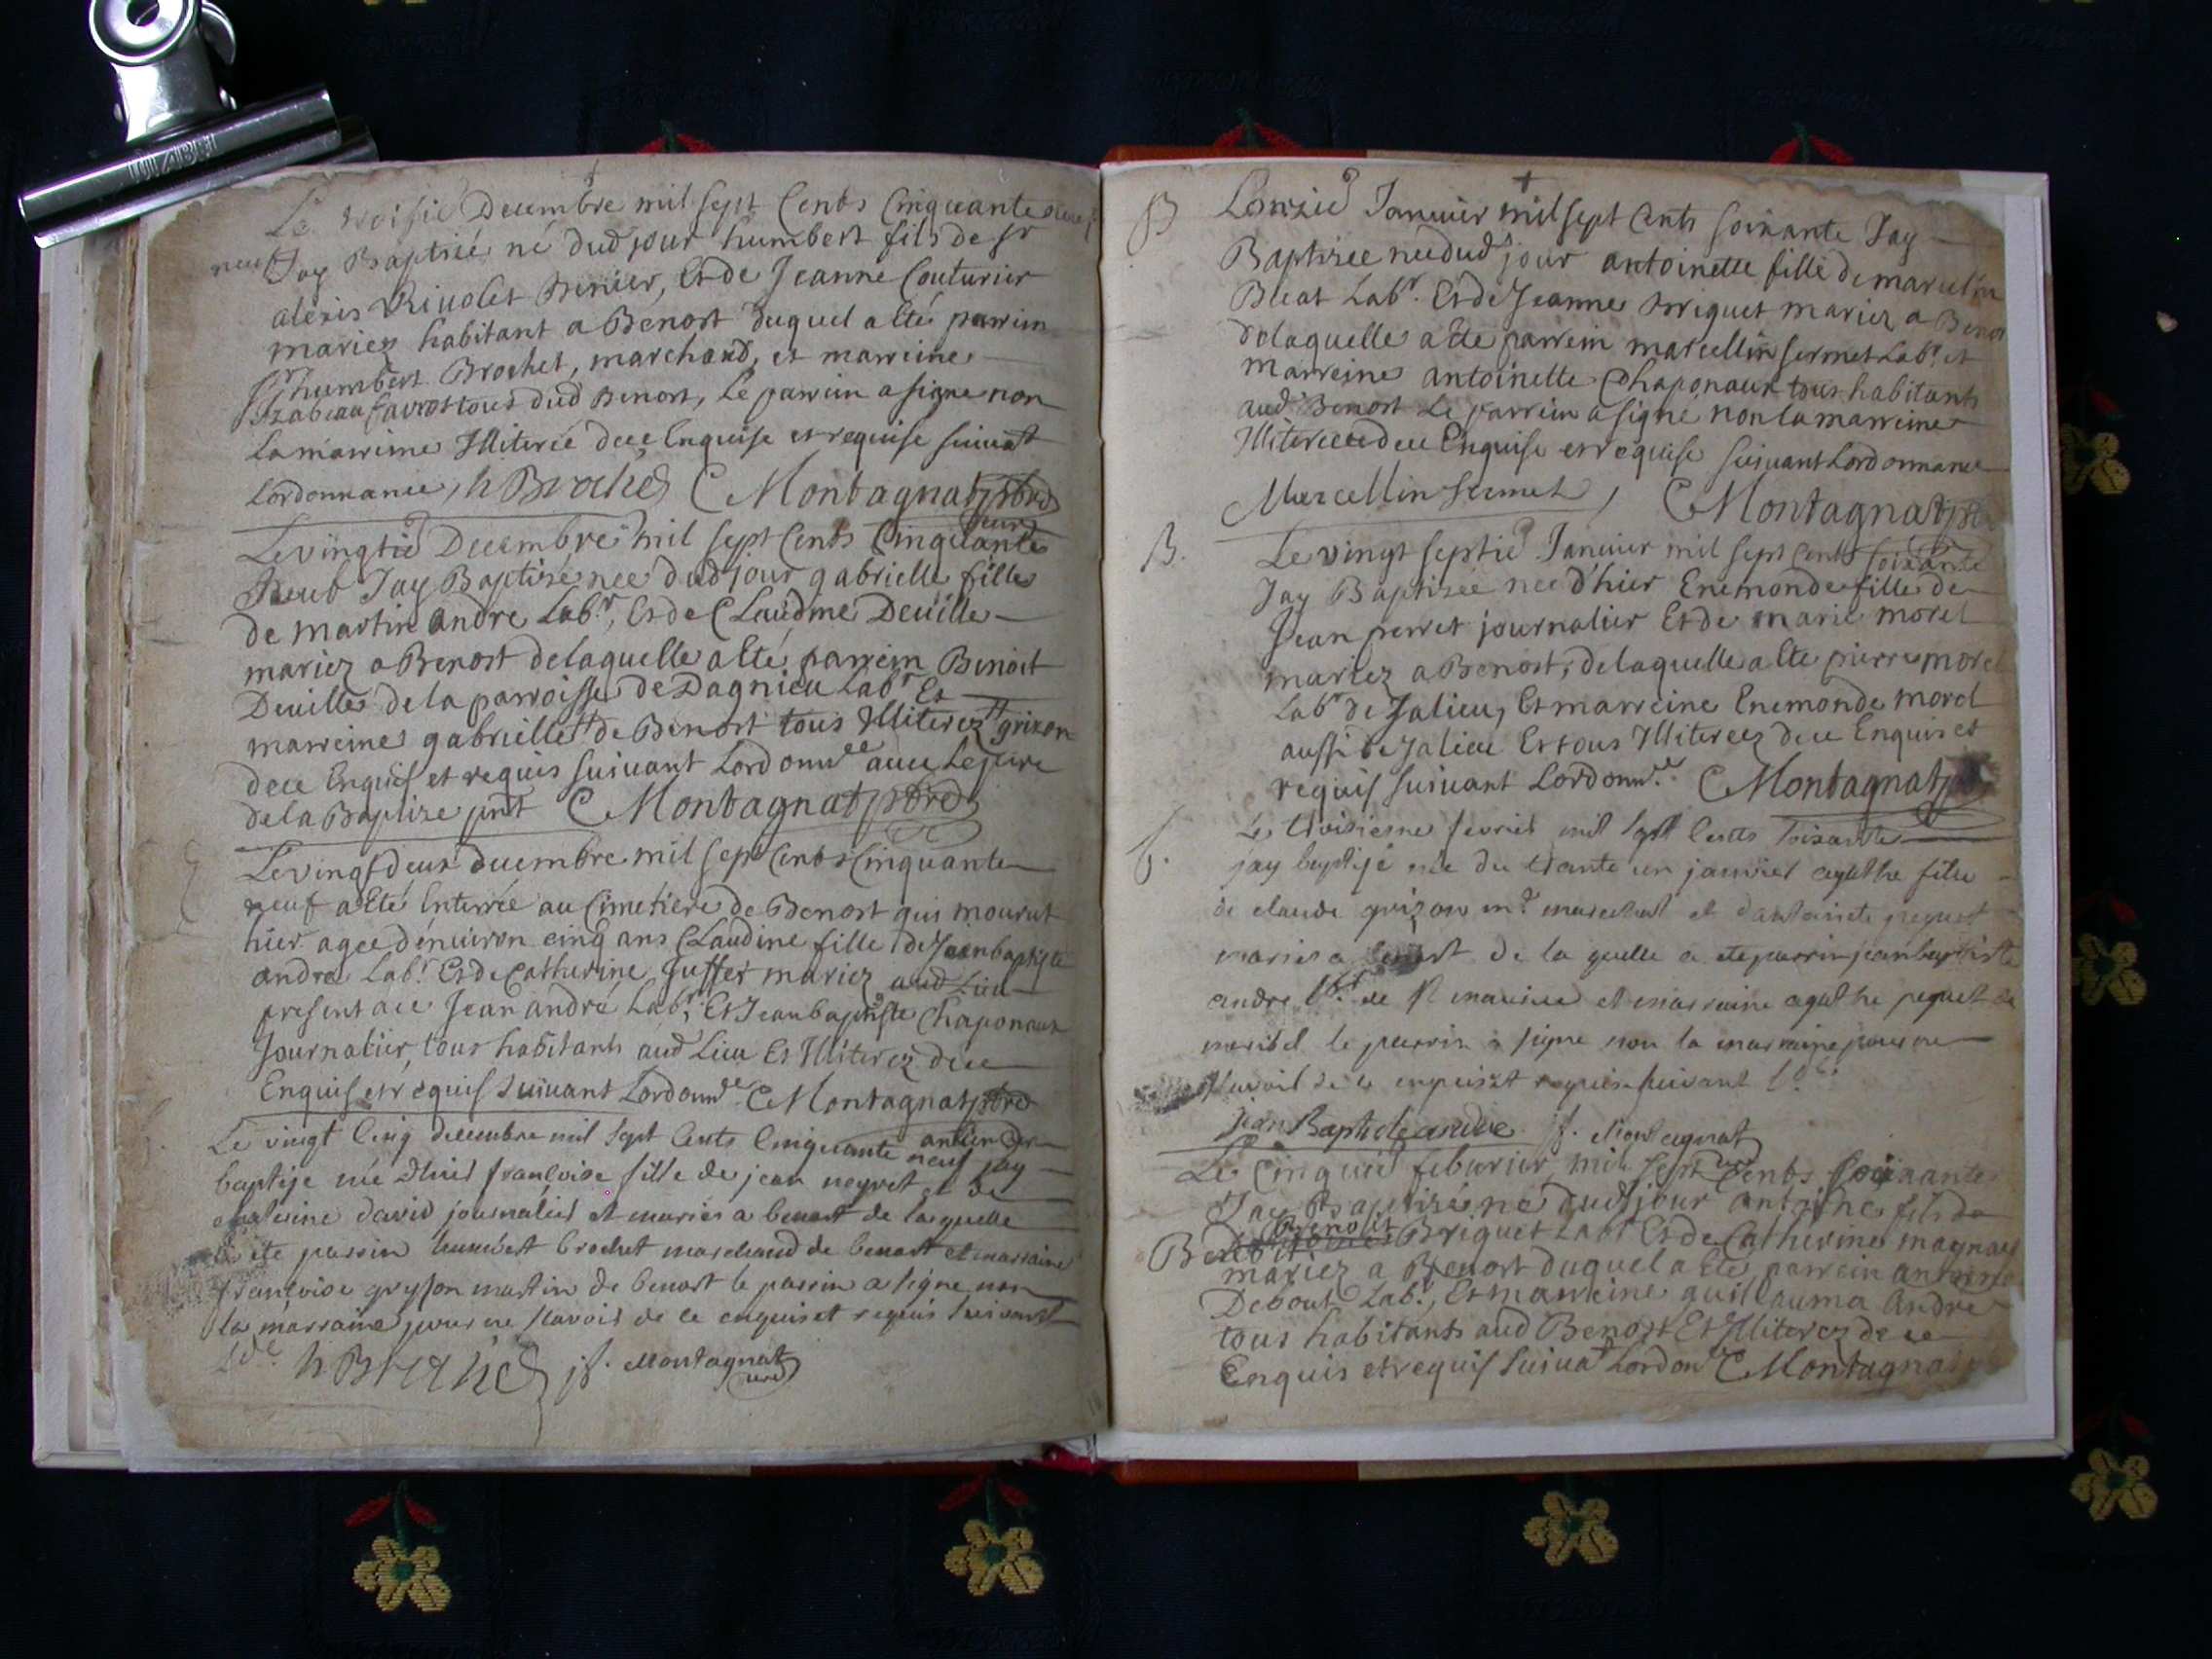 Le troisie Decembre mil sept Cents Cinquante
neuf Jay Baptisé né dud jour humbert fils de sr
alexis Riuolet Et de Jeanne Couturier
mariez habitant a Benost duquel a Eté parrein
Sr humbert Brochet, marchand, et marreine
Izabeau favrost tous dud Benost, Le parrein a signe non
La marreine Illiterée de ce Enquise et requise suiuat
Lordonnance, h Brochet C Montagnat pbre
curé
Le vingtie Decembre mil sept Cents Cinquante
Neuf Jay Baptisé née dud jour gabrielle fille
de martin andre Labr, Et de Claudine Deuille
mariez a Benost de laquelle a Eté parrein Benoit
Deuille de la parroisse de Dagnieu Labr Et
marreine gabrielle de Benost tous Illiterez grizon
de ce Enquis et requis suiuant Lordonnce auec Le pere
de la Baptize prnt C Montagnat pbre
Le vingt deux decembre mil sept Cents Cinquante
neuf a Eté Enterrée au Cimetiere de Benost qui mourut
hier agee d'enuiron cinq ans Claudine fille de Jean baptiste
andre Labr Et de Catherine Juffet mariez aud Lieu
present a ce Jean andré Labr, Et Jean baptiste Chaponaux
Journalier, tous habitants aud Lieu Et Illiterez de ce
Enquis et requis suiuant Lordonnce C Montagnat pbre
Le vingt Cinq decembre mil sept Cents Cinquante neuf jay
baptise née d'hier francoise fille de jean neyret et de
catherine david journalier et mariés a benost de laquelle
a ete parrin humbert brochet marchand de benost et marraine
francoise gryson martin de benost le parrin a signe non
la marraine pour ne scavoir de ce enquis et requis suivant
Lde h Brochet jf. Montagnat
curé
B Lonzie Januier mil sept Cents soixante Jay
Baptizee née dud jour antoinette fille de marcelin
Bleat Labr. Et de Jeanne Briguet mariez a Benost
de laquelle a Eté parrein marcellin sermet Labr. et
marreine antoinette Chaponaux tous habitants
aud Benost Le parrein a signé non la marreine
Illiteree de ce Enquise et requise suiuant Lordonnance
Marcellin sermet, C Montagnat pbre
B. Le vingt septie Januier mil sept Cents soixante
Jay Baptizée née d'hier Enemonde fille de
Jean perret journalier Et de marie morel
mariez a Benost, de laquelle a Eté pierre morel
Labr de Jalieu, Et marreine Enemonde morel
aussi de Jalieu Et tous Illiterez de ce Enquis et
requis suiuant Lordonnce. C Montagnat pbre
b. Le troisieme fevrier mil sept Cents soixante
jay baptisé née du trante un janvier agathe fille
de claude grizon md marechal et dantoinete pequet
mariés a benost de la quelle a ete parrin jean baptiste
andre Lbr de st maurice et marraine agathe pequet de
meribel le parrin a signe non la marraine pour ne
scavoir de ce enquis et requise suivant ldce
jean Baptiste andre jf. Montagnat
curé
Le Cinquie feburier mil sept Cents soixante
Jay Baptizé né dud jour antoine fils de
Benoit Briguet Labr Et de Catherine magnan
mariez a Benost duquel a Eté parrein antoine
Debout Labr, Et marreine guillauma Andre
tous habitants aud Benost Et Illiterez de ce
Enquis et requis suiuat Lordonce C Montagnat